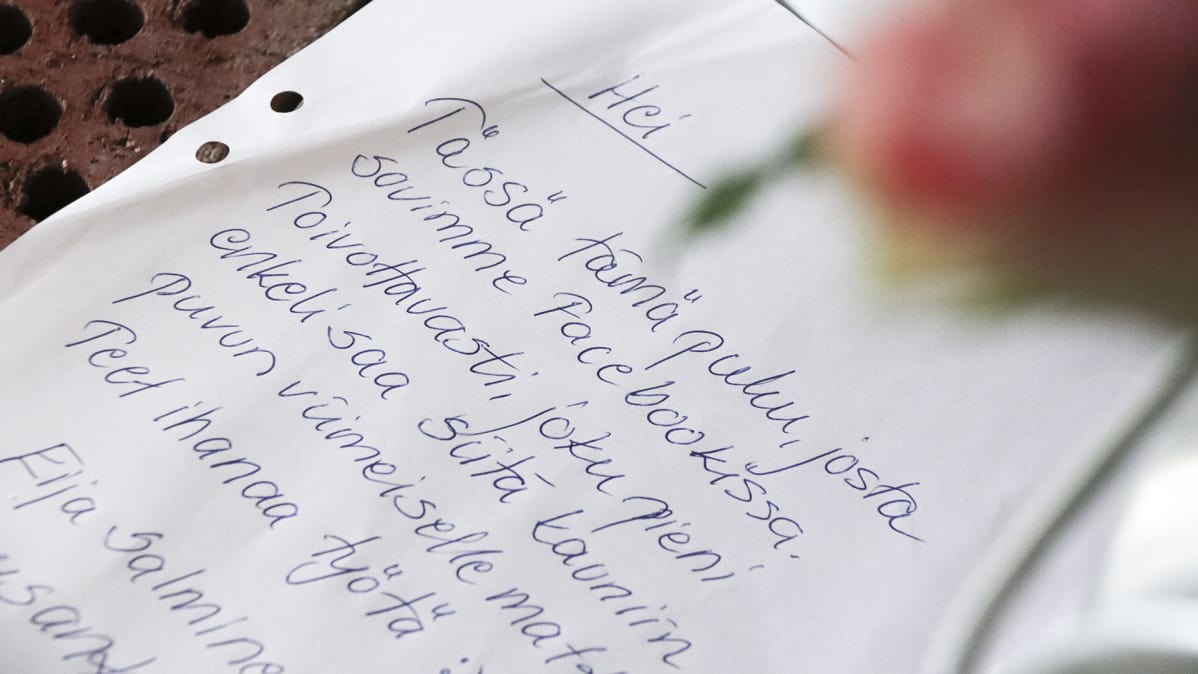 Hei
Tässä tämä puku, josta
sovimme Facebookissa.
Toivottavasti, joku pieni
enkeli saa siitä kauniin
puvun viimeiselle mat
Teet ihanaa työtä
Eija Salmine
usan